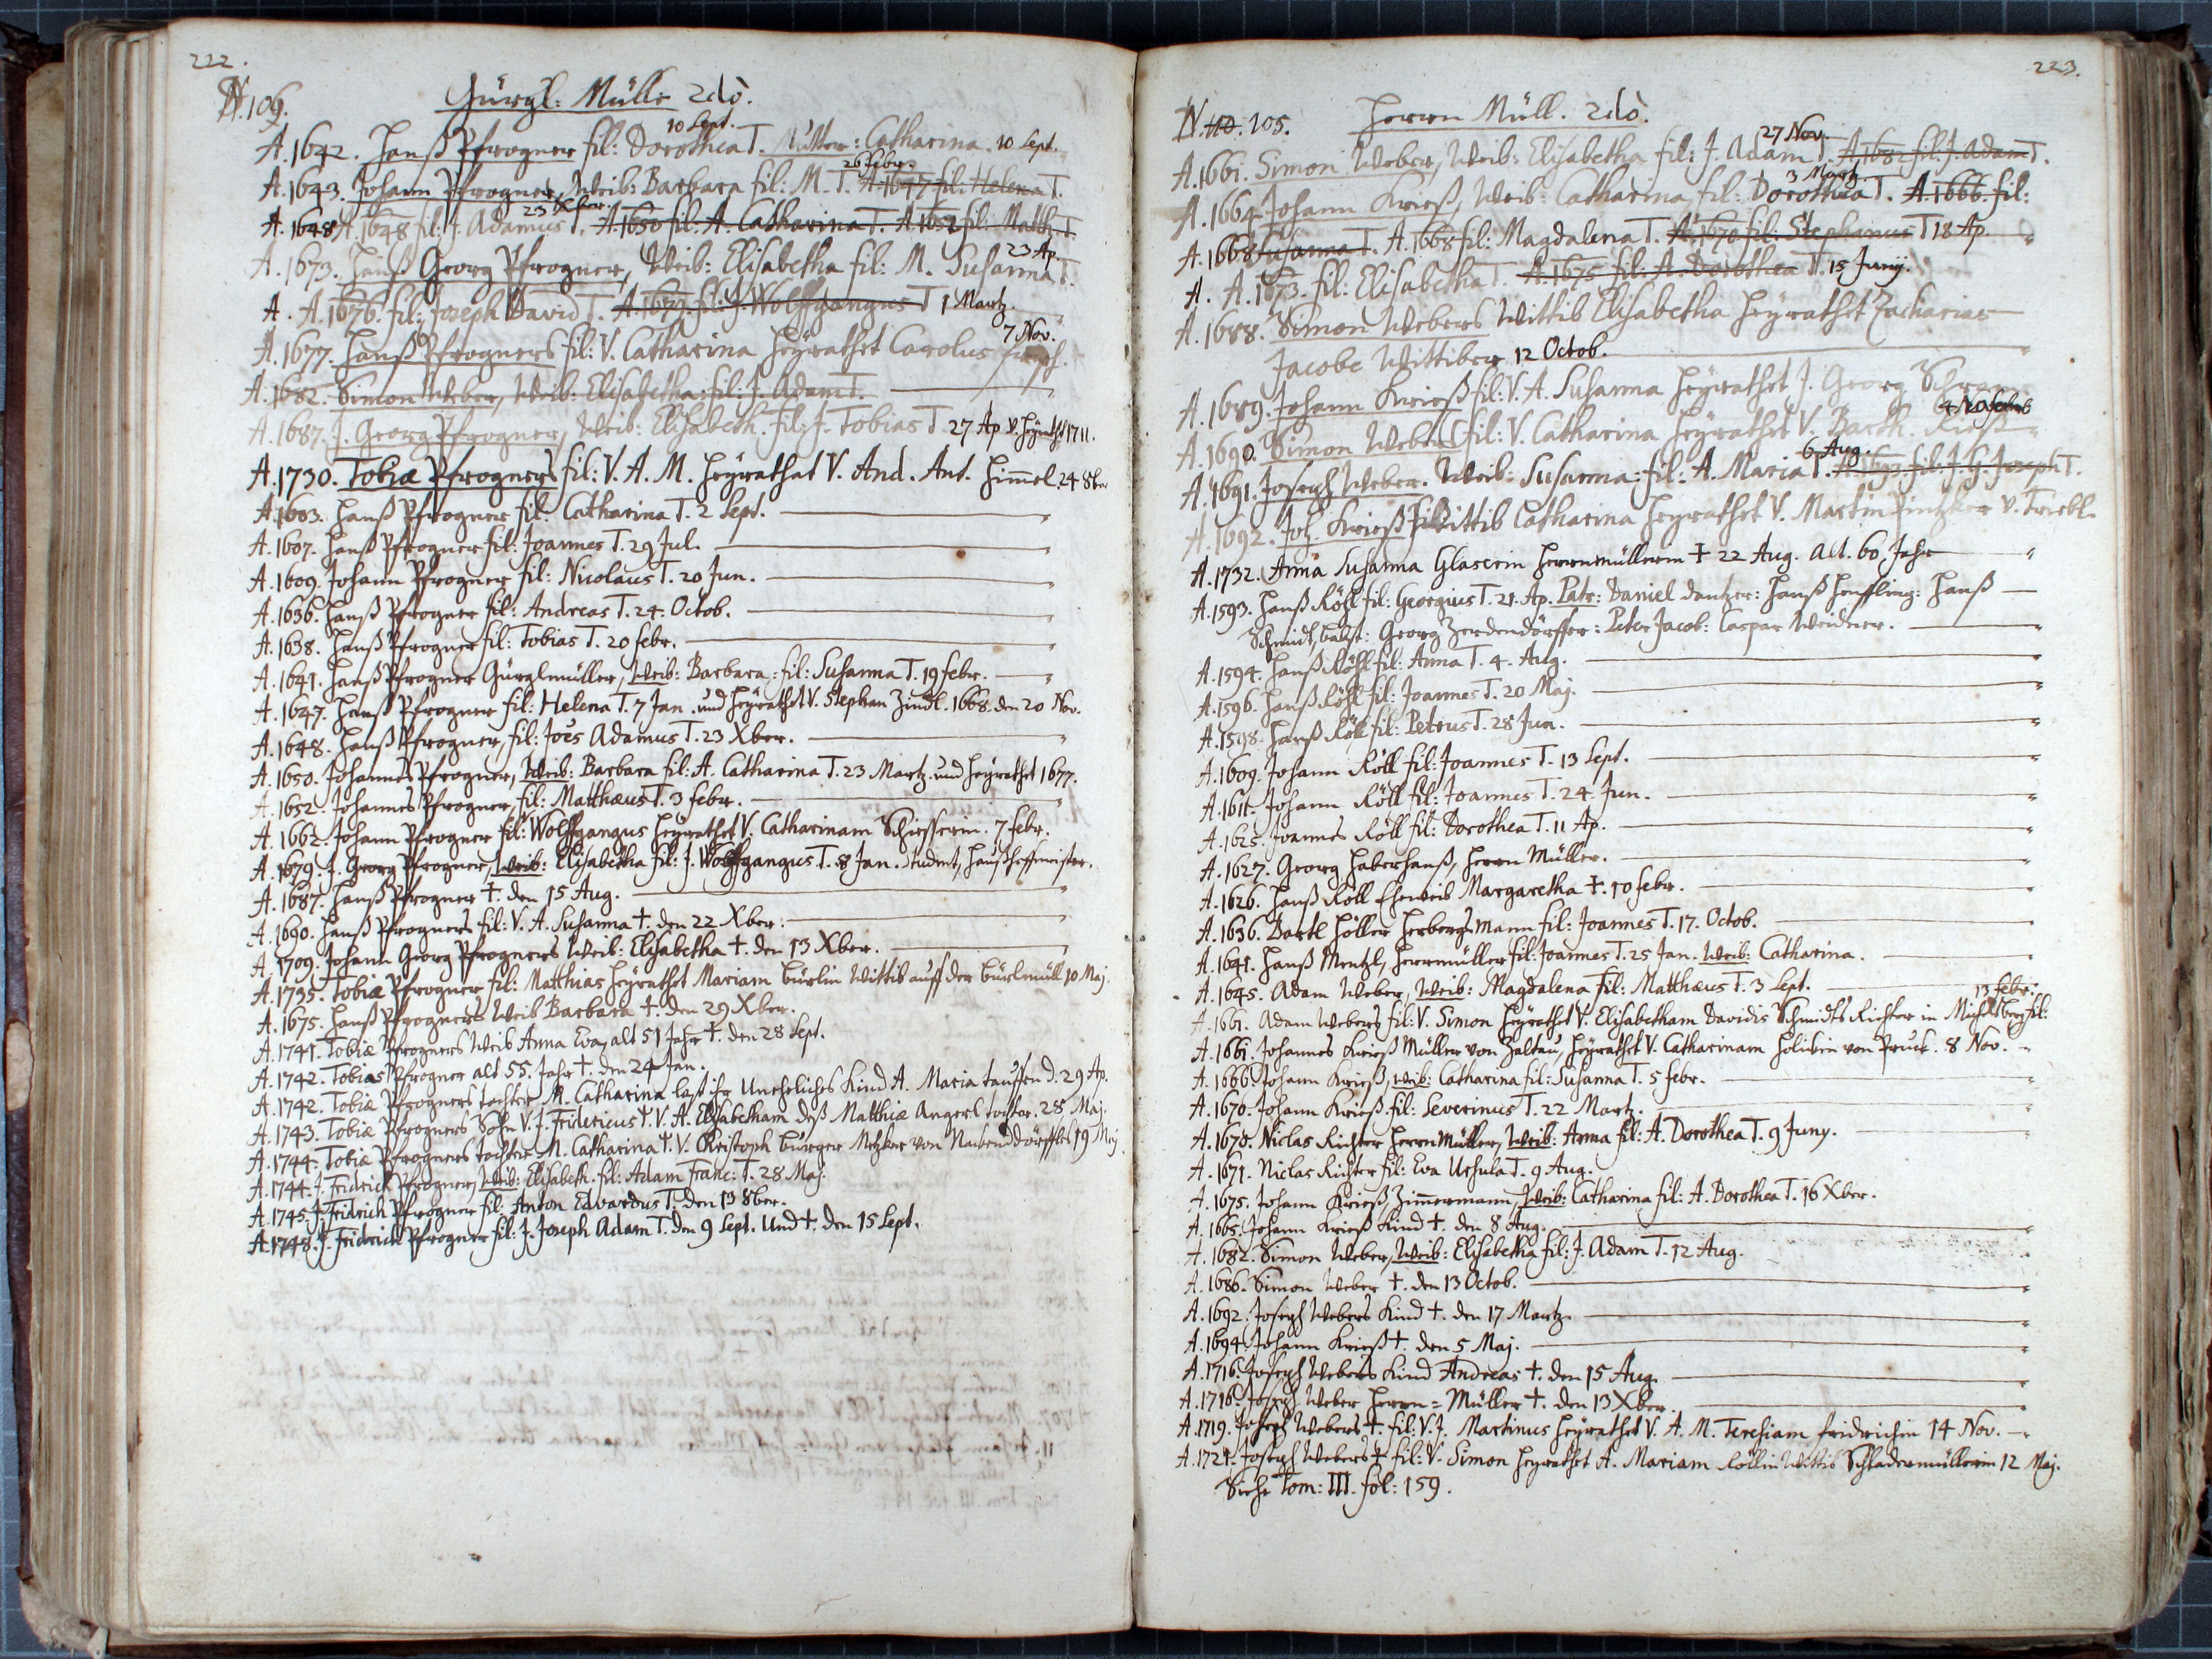 222.
N. 109. Gürgl: Müller 2dò.
A. 1642. Hanß Pfrogner fil: Dorothea T. 10 Sept. Mutter: Catharina. 10 Sept.
A. 1643. Johann Pfrogner, Weib: Barbara fil: M. T. 26 Febr. A. 1647 fil: Helena T.
A. 1648 A. 1648 fil: J. Adamus T. 23 Xber. A. 1650 fil: A. Catharina T. A. 1652 fil: Matth: T.
A. 1673. Hanß Georg Pfrogner, Weib: Elisabetha fil: M. Susanna T. 23 Ap.
A. A. 1676. fil: Joseph David T. A. 1679. fil: J. Wolffgangus T 1 Martz.
A. 1677. Hanß Pfrogners fil: V. Catharina heÿrathet Carolus 7 Nov.
A. 1682. Simon Weber, Weib: Elisabetha: fil: J. Adam T.
A. 1687. J. Georg Pfrogner, Weib: Elisabeth. fil: J. Tobias T. 27 Ap v. heÿrath 1711.
A. 1730. Tobiæ Pfrogners fil: V. A. M. heÿrathet V. And. Ant. Himmel. 24 8ber
A. 1603. Hanß Pfrogner fil: Catharina T. 2 Sept.
A. 1607. Hanß Pfrogner fil: Joannes T. 29 Jul.
A. 1609. Johann Pfrogner fil: Nicolaus T. 20 Jun.
A. 1636. Hanß Pfrogner fil: Andreas T. 24. Octob.
A. 1638. Hanß Pfrogner fil: Tobias T. 20 febr.
A. 1641. Hanß Pfrogner Gürglmüller, Weib: Barbara: fil: Susanna T. 19 febr.
A. 1647. Hanß Pfrogner fil: Helena T. 7 Jan. und heÿrathet V. Stephan Zindl. 1668. den 20 Nov.
A. 1648. Hanß Pfrogner, fil: Joes Adamus T. 23 Xber.
A. 1650. Johannes Pfrogner, Weib: Barbara fil: A. Catharina T. 23 Martz. und heÿrathet 1677.
A. 1652. Johannes Pfrogner, fil: Matthæus T. 3 febr.
A. 1662. Johann Pfrogner fil: Wolffgangus heÿrathet V. Catharinam Schiesserin. 7 febr.
A. 1679. J. Georg Pfrogner, Weib: Elisabetha fil: J. Wolffgangus T. 8 Jan. Student, Haußhoffmeister.
A. 1687. Hanß Pfrogner †. den 15 Aug.
A. 1690. Hanß Pfrogners fil: V. A. Susanna †. den 22 Xber.
A. 1709. Johann Georg Pfrogners Weib: Elisabetha †. den 13 Xber.
A. 1735. Tobiæ Pfrogner fil: Matthias heÿrathet Mariam bürlin Wittib auff der bürlmüll 10 Maj.
A. 1675. Hanß Pfrogners Weib Barbara †. den 29 Xber.
A. 1741. Tobiæ Pfrogners Weib Anna Eva, alt 51 Jahr †. den 28 Sept.
A. 1742. Tobias Pfrogner alt 55. Jahr †. den 24 Jan.
A. 1742. Tobiæ Pfrogners tochter M. Catharina last ihr Uneheliches Kind A. Maria tauffen d. 29 Ap.
A. 1743. Tobiæ Pfrogners Sohn V. J. Fridericus †. V. A. Elisabetham deß Matthiæ Angerl tochter. 28 Maj.
A. 1744. Tobiæ Pfrogners tochter M. Catharina †. V. Christoph bürger Metzker von Nackenddörffles 19 Maj.
A. 1744. J. Fridrich Pfrogner, Weib: Elisabeth. fil: Adam Franc: T. 28 Maj.
A. 1745. J. Fridrich Pfrogner fil: Anton Edvardus T. den 13 8ber.
A. 1748. J. Fridrich Pfrogner fil: J. Joseph Adam T. den 9 Sept. Und †. den 15 Sept.
223.
N. 110. 105. Herrn Müll. 2dò.
A. 1661. Simon Weber, Weib: Elisabetha fil: J. Adam T. 27 Nov. A. 1682 fil: J. Adam T.
A. 1664. Johann Krieß, Weib: Catharina fil: Dorothea T. 3 Martz. A. 1666. fil:
A. 1668 Susanna T. A. 1668 fil: Magdalena T. A. 1670 fil: Stephanus T 18 Ap.
A. A. 1673. fil: Elisabetha T. A. 1675 fil: A. Dorothea T. 15 Junÿ.
A. 1688. Simon Webers Wittib Elisabetha heÿrathet Zacharias
Jacobe Wittiber 12 Octob.
A. 1689. Johann Krieß fil: V. A. Susanna heÿrathet J. Georg
A. 1690. Simon Webers fil: V. Catharina heÿrathet V. Barth.
A. 1691. Joseph Weber. Weib: Susanna: fil: A. Maria T. 6 Aug. A. 1693. fil: J. G. Joseph T.
A. 1692. Joh. Krieß Wittib Catharina heÿrathet V. Martin Pintzker v. Triebl.
A. 1732. Anna Susanna Glaserin Herrnmüllerin † 22 Aug. alt. 60 Jahr
A. 1593. Hanß Röhl fil: Georgius T. 21. Ap. Patr: Daniel Dantzer: Hanß Henffling: Hanß
Schmidt, balzt: Georg Zerdendörffer: Peter Jacob: Caspar Weidner.
A. 1594. Hanß Röhl fil: Anna T. 4. Aug.
A. 1596. Hanß Röhl fil: Joannes T. 20 Maj.
A. 1598. Hanß Röhl fil: Petrus T. 28 Jun.
A. 1609. Johann Röll fil: Joannes T. 13 Sept.
A. 1611. Johann Röll fil: Joannes T. 24. Jun.
A. 1625. Joannes Röll fil: Dorothea T. 11 Ap.
A. 1627. Georg Haberhanß, Herrn Müller.
A. 1626. Hanß Röll Eheweib Margaretha †. 10 febr.
A. 1636. Bartl Höller Herbergsmann fil: Joannes T. 17. Octob.
A. 1641. Hanß Mentzl, Herrnmüller fil: Joannes T. 25 Jan. Weib: Catharina.
A. 1645. Adam Weber, Weib: Magdalena fil: Matthæus T. 3 Sept.
A. 1661. Adam Webers fil: V. Simon heÿrathet V. Elisabetham Davidis Schmidts Richter in Michelsberg fil: 13 febr.
A. 1661. Johannes Krieß Müller von Zaltau, heÿrathet V. Catharinam Holikin von Pruck. 8 Nov.
A. 1666. Johann Krieß, Weib: Catharina fil: Susanna T. 5 febr.
A. 1670. Johann Krieß. fil: Severinus T. 22 Martz.
A. 1670. Niclas Richter Herrn Müller, Weib: Anna fil: A. Dorothea T. 9 Juny.
A. 1671. Niclas Richter fil: Eva Ursula T. 9 Aug.
A. 1675. Johann Krieß, Zimmermann, Weib: Catharina fil: A. Dorothea T. 16 Xber.
A. 1665. Johann Krieß Kind †. den 8 Aug.
A. 1682. Simon Weber, Weib: Elisabetha fil: J. Adam T. 12 Aug.
A. 1686. Simon Weber †. den 13 Octob.
A. 1692. Joseph Webers Kind †. den 17 Martz.
A. 1694. Johann Krieß †. den 5 Maj.
A. 1716. Joseph Webers Kind Andreas †. den 15 Aug.
A. 1716. Joseph Weber Herrn=Müller †. den 13 Xber.
A. 1719. Joseph Webers †. fil: V. J. Martinus heÿrathet V. A. M. Teresiam fridrichin 14 Nov.
A. 1721. Joseph Webers † fil: V. Simon heÿrathet A. Mariam Röllin Wittib Schladermüllerin 12 Maj.
Siehe Tom: III. fol: 159.